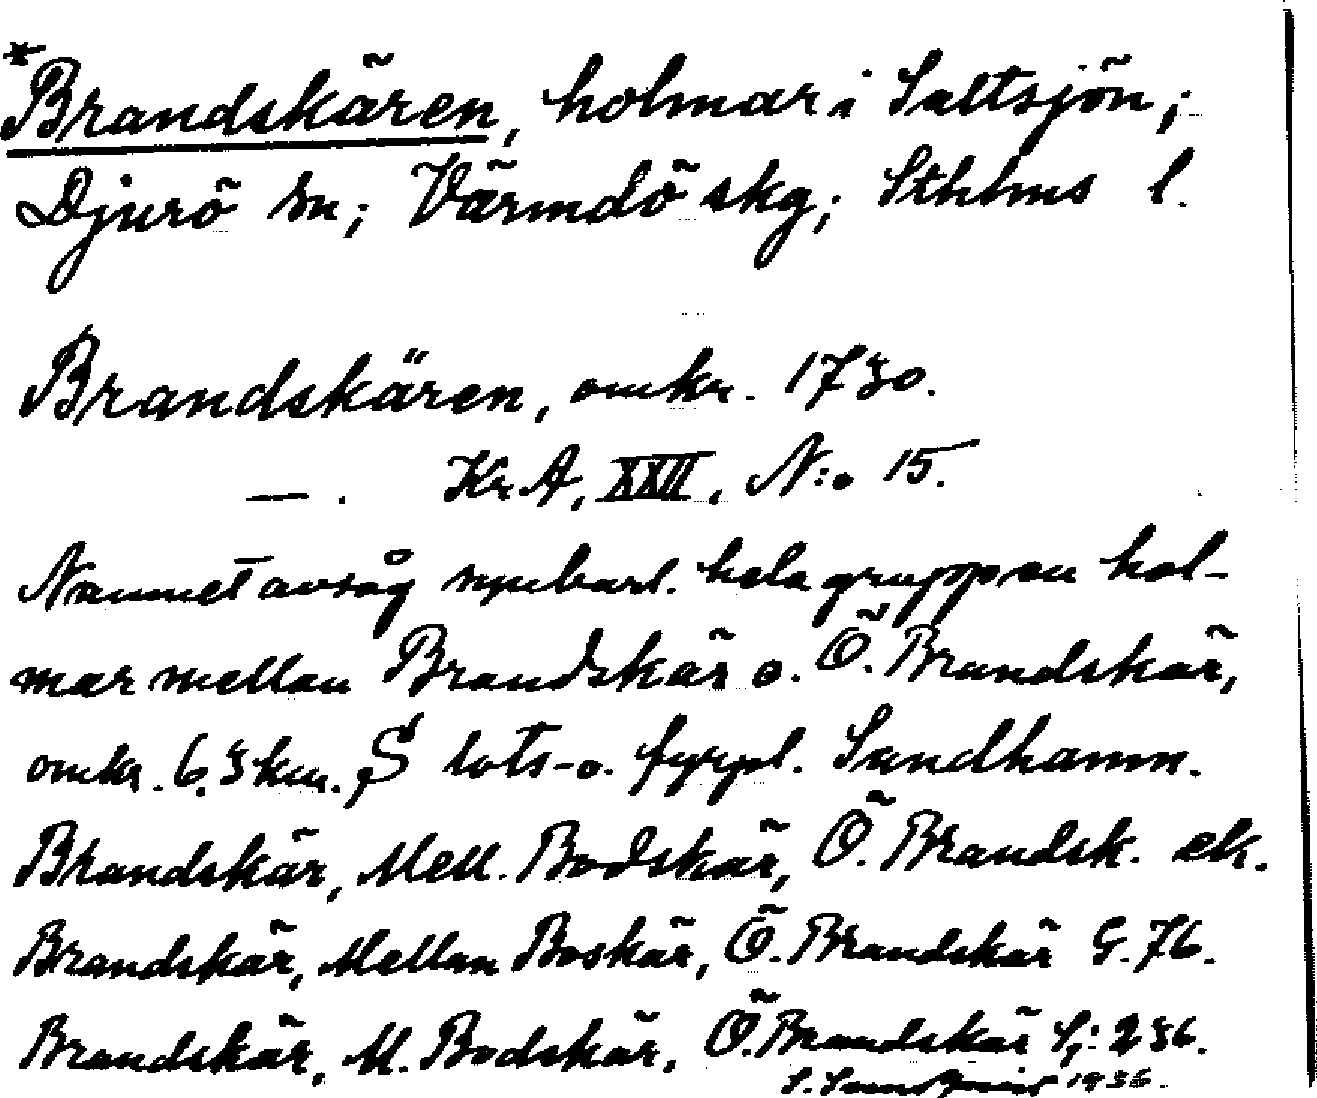 *Brandskären, holmar i Saltsjön;
Djurö sn; Värmdö skg; Sthlms l.
Brandskären, omkr. 1730.
— . Kr. A, XXII, N:o 15.
Namnet avsåg synbarl. hela gruppen hol-
mar mellan Brandskär o. Ö. Brandskär,
omkr. 6,5 km. S lots- o. fyrpl. Sandhamn.
Brandskär, Mell. Bodskär, Ö. Brandsk. ek.
Brandskär, Mellan Boskär, Ö. Brandskär G. 76.
Brandskär, M. Bodskär, Ö. Brandskär Sj: 236.
1936.